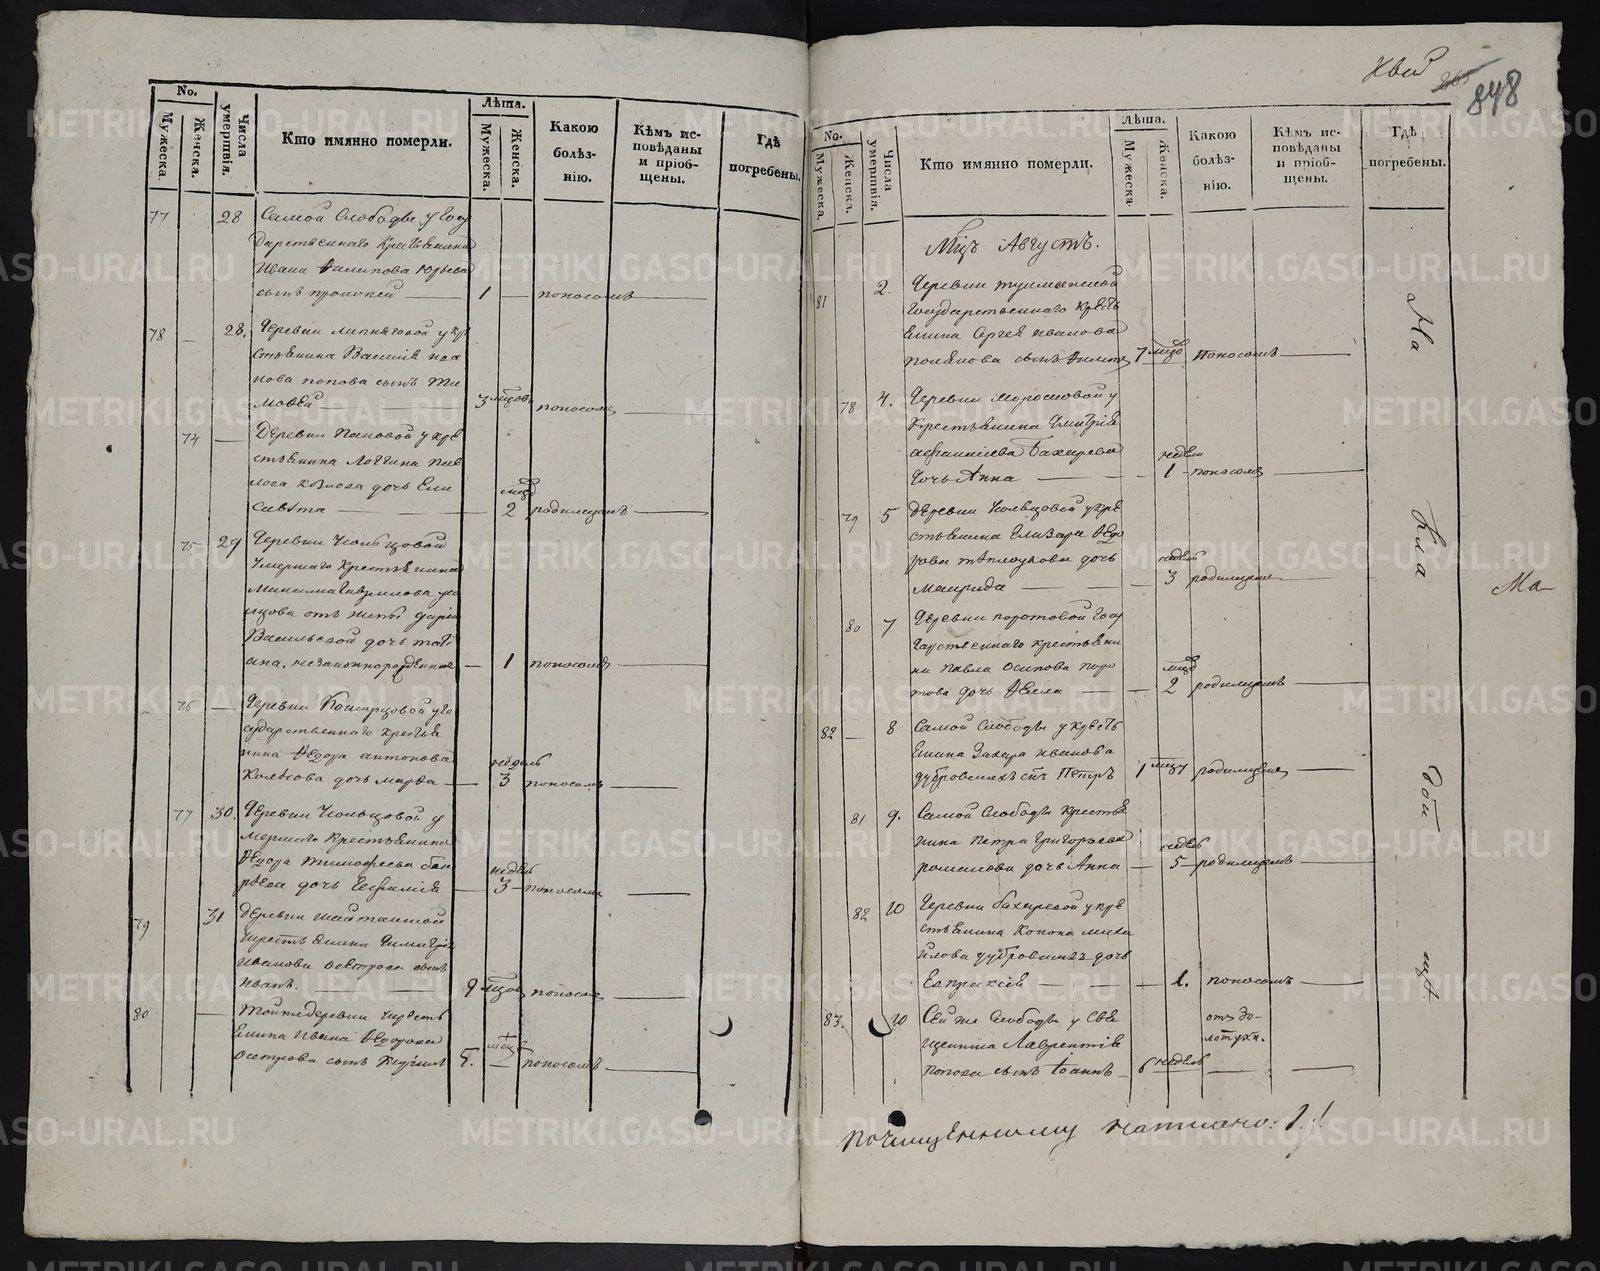 No.
Мужеска.
Женска.
Числа умертвія.
Кто имянно померли.
Лѣта.
Мужеска.
Женска.
Какою болѣз-
нію.
Кѣмъ ис-
повѣданы
и пріоб-
щены.
Гдѣ
погребены.
77 28 Самой Слободы у Госу
дарственнаго крестьянина
Ивана Филипова Юрьева
сынъ Прокопей 1 поносомъ
78 28. Деревни Липняговой у кре
стьянина Василія Ива
нова Попова сынъ Ти
мофей 3 мѣцовъ поносомъ
74 Деревни Пановой у кре
стьянина Логгина Пав
лова Козлова дочь Ели
савета 2 мѣц родимцомъ
75 29 Деревни Кольцовой
умершаго крестьянина
Максима Гаврилова
отъ жены Дарьи
Васильевой дочь Тати
ана, незаконнорожденная 1 поносомъ
76 Деревни у го
сударственнаго крестья
нина Ѳедора Антонова
дочь Марѳа 3 недель поносомъ
77 30. Деревни Кольцовой у
мершаго крестьянина
Ѳедора Тимофеева
дочь Евфимія 3 недель поносомъ
79 31 Деревни Шайтанской
крестьянина Димитрія
Иванова Осетрова сынъ
Иванъ. 9 мѣцов поносом
80 Той же деревни кресть
янина Ивана Ѳедорова
Осетрова сынъ 5. мѣц поносомъ
848
No.
Мужеска.
Женска.
Числа умертвія.
Кто имянно померли.
Лѣта.
Мужеска.
Женска.
Какою
болѣз-
нію.
Кѣмъ ис-
повѣданы
и пріоб-
щены.
Гдѣ
погребены.
Мцъ Августъ.
81 2. Деревни
Государственнаго кресть
янина Сергея Иванова
Полянова сынъ 7 мѣцо поносомъ
78 4. Деревни Морозковой у
крестьянина Димитрія
Афанасіева Бахарева
дочь Анна 1 недели поносомъ
79 5 Деревни Кольцовой у кре
стьянина Елизара Ѳедо
рова Теплоухова дочь
3 недель родимцомъ
80 7 Деревни Поротовой Госу
дарственнаго крестьяни
на Павла Осипова Поро
това дочь Ѳекла 2 мѣц родимцомъ
82 8 Самой Слободы у кресть
янина Захара Иванова
Дубровскихъ сынъ Петръ 1 мѣцу родимцомъ
81 9. Самой Слободы крестья
нина Петра Григорьева
Романова дочь Анна 5 недель родимцомъ
82 10 Деревни Бахаревой у кре
стьянина Конона Миха
йлова Дубровскихъ дочь
Евпраксія 1. поносомъ
83. 10 Сей же Слободы у Свя
щенника Лаврентія
Попова сынъ Іоаннъ 6 недель отъ зо-
лотухи.
На
Кла
дби
щѣ.
Ма-
по чищенному написано: 1.!